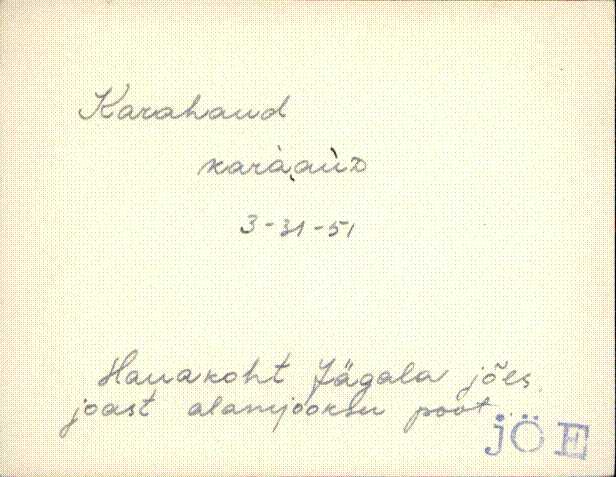 Karahaud
karàaùᴅ
3-31-51
Hauakoht Jägala jões
joast alamjooksu poot
JÖE